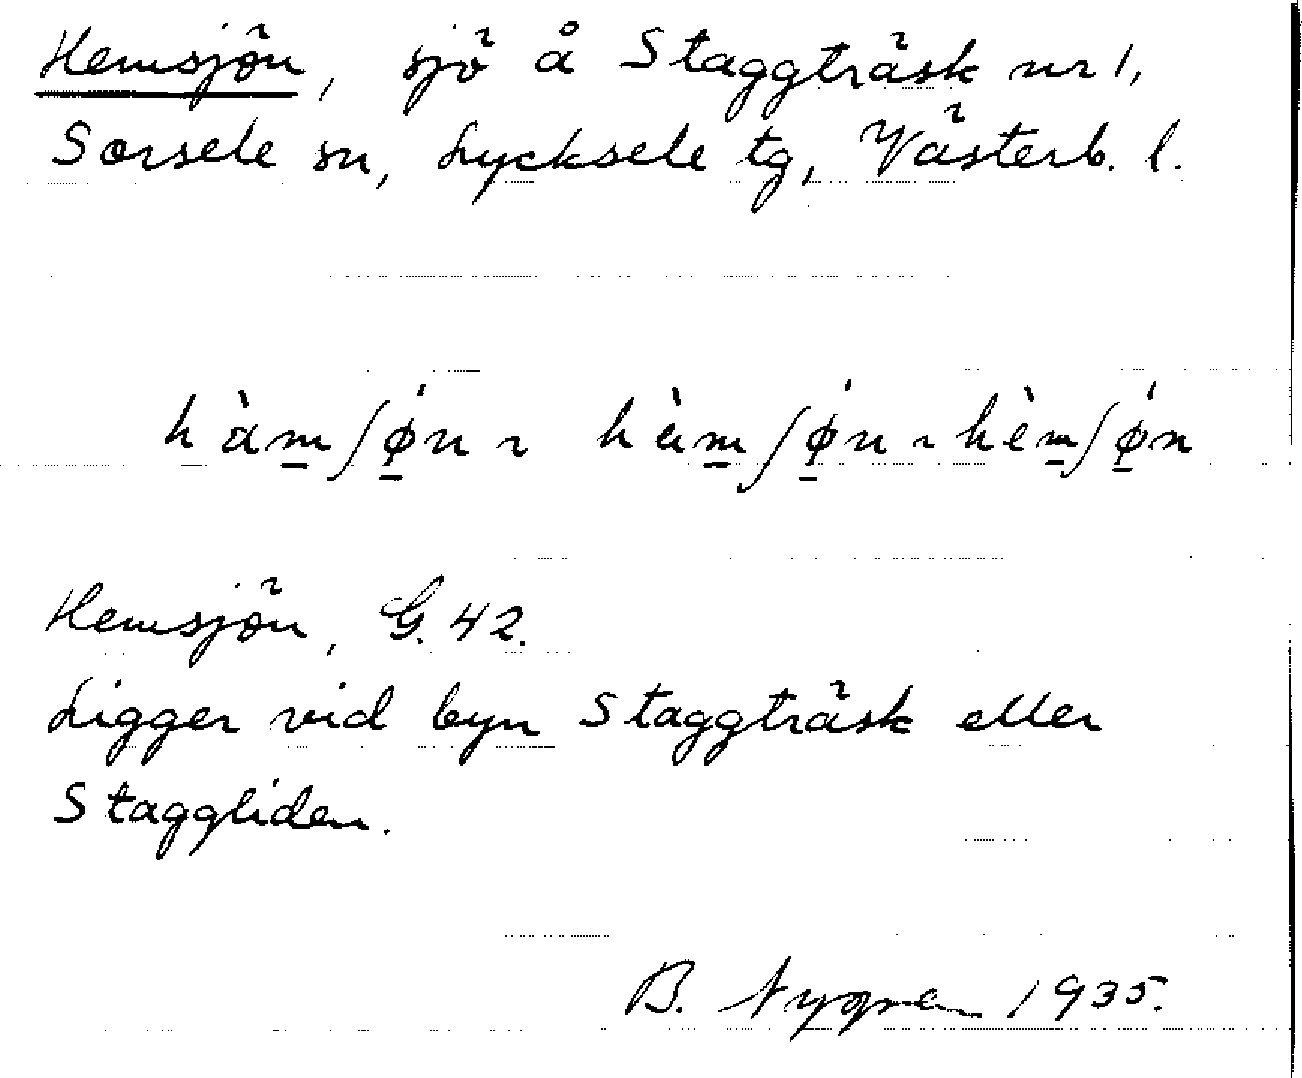 Hemsjön, sjö å Staggträsk nr 1,
Sorsele sn, Lycksele tg, Västerb. l.
hàm̲ʃǿ̲n ~ hàm̲ʃǿ̲n ~ hèm̲ʃǿ̲n
Hemsjön, G. 42.
Ligger vid byn Staggträsk eller
Staggliden.
B. Nygren 1935.